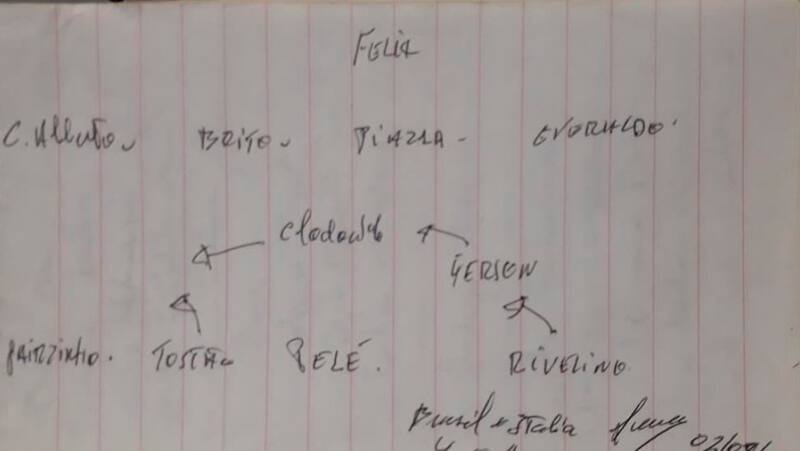 FELIX
C. Alberto. BRITO. PIAZZA - EVERALDO.
Clodoaldo
GERSON
JAIRZINHO. TOSTÃO PELÉ. RIVELINO
Brasil x Itália